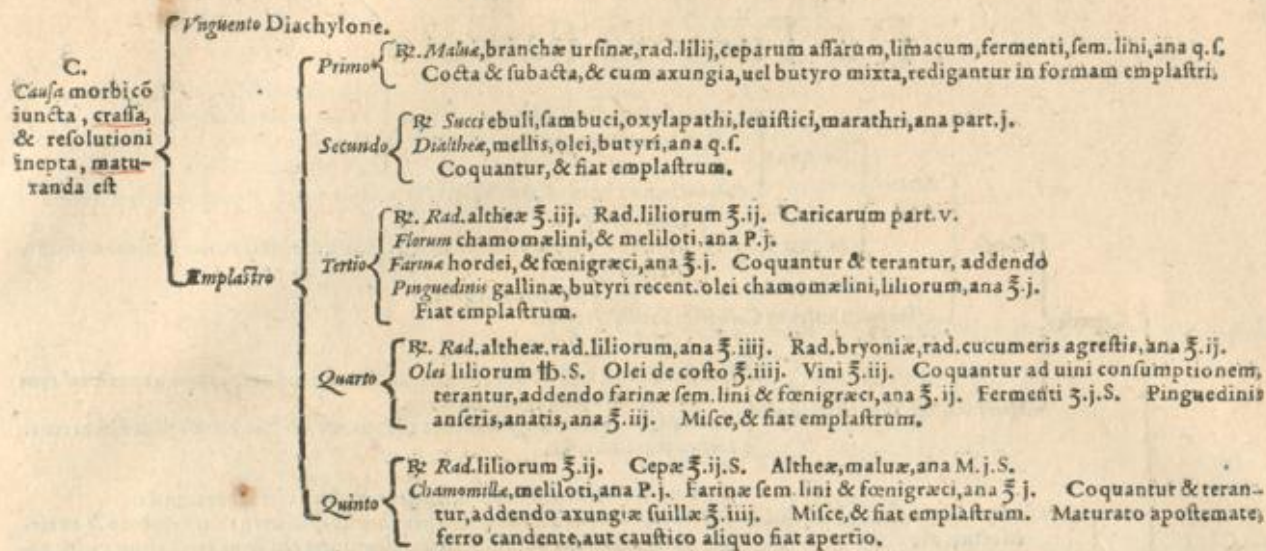 Vnguento Diachylone.
C.
Causa morbi cō
iuncta, crassa,
& resolutioni
inepta, matu-
randa est
Emplastro
Primo
℞. Maluæ, branchæ ursinæ, rad. lilij, ceparum assarum, limacum, fermenti, sem. lini, ana q. s.
Cocta & subacta, & cum axungia, uel butyro mixta, redigantur in formam emplastri.
Secundo
℞ Succi ebuli, sambuci, oxylapathi, leuistici, marathri, ana part. j.
Dialtheæ, mellis, olei, butyri, ana q. s.
Coquantur, & fiat emplastrum.
Tertio
℞. Rad. altheæ ℥.iij. Rad. liliorum ℥.ij. Caricarum part. v.
Florum chamomælini, & meliloti, ana P. j.
Farinæ hordei, & fœnigræci, ana ℥.j. Coquantur & terantur, addendo
Pinguedinis gallinæ, butyri recent. olei chamomælini, liliorum, ana ℥.j.
Fiat emplastrum.
Quarto
℞. Rad. altheæ. rad. liliorum, ana ℥.iiij. Rad. bryoniæ, rad. cucumeris agrestis, ana ℥.ij.
Olei liliorum ℔.S. Olei de costo ℥.iiij. Vini ℥.iij. Coquantur ad uini consumptionem,
terantur, addendo farinæ sem. lini & fœnigræci, ana ℥. ij. Fermenti ʒ.j.S. Pinguedinis
anseris, anatis, ana ℥.iij. Misce, & fiat emplastrum.
Quinto
℞ Rad. liliorum ℥.ij. Cepæ ℥.ij.S. Altheæ, maluæ, ana M. j. S.
Chamomillæ, meliloti, ana P. j. Farinæ sem. lini & fœnigræci, ana ℥. j. Coquantur & teran-
tur, addendo axungiæ suillæ ℥.iiij. Misce, & fiat emplastrum. Maturato apostemate,
ferro candente, aut caustico aliquo fiat apertio.